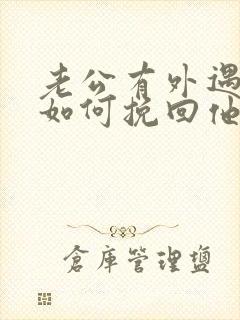 老公有外遇
如何挽回他
倉庫管理鹽